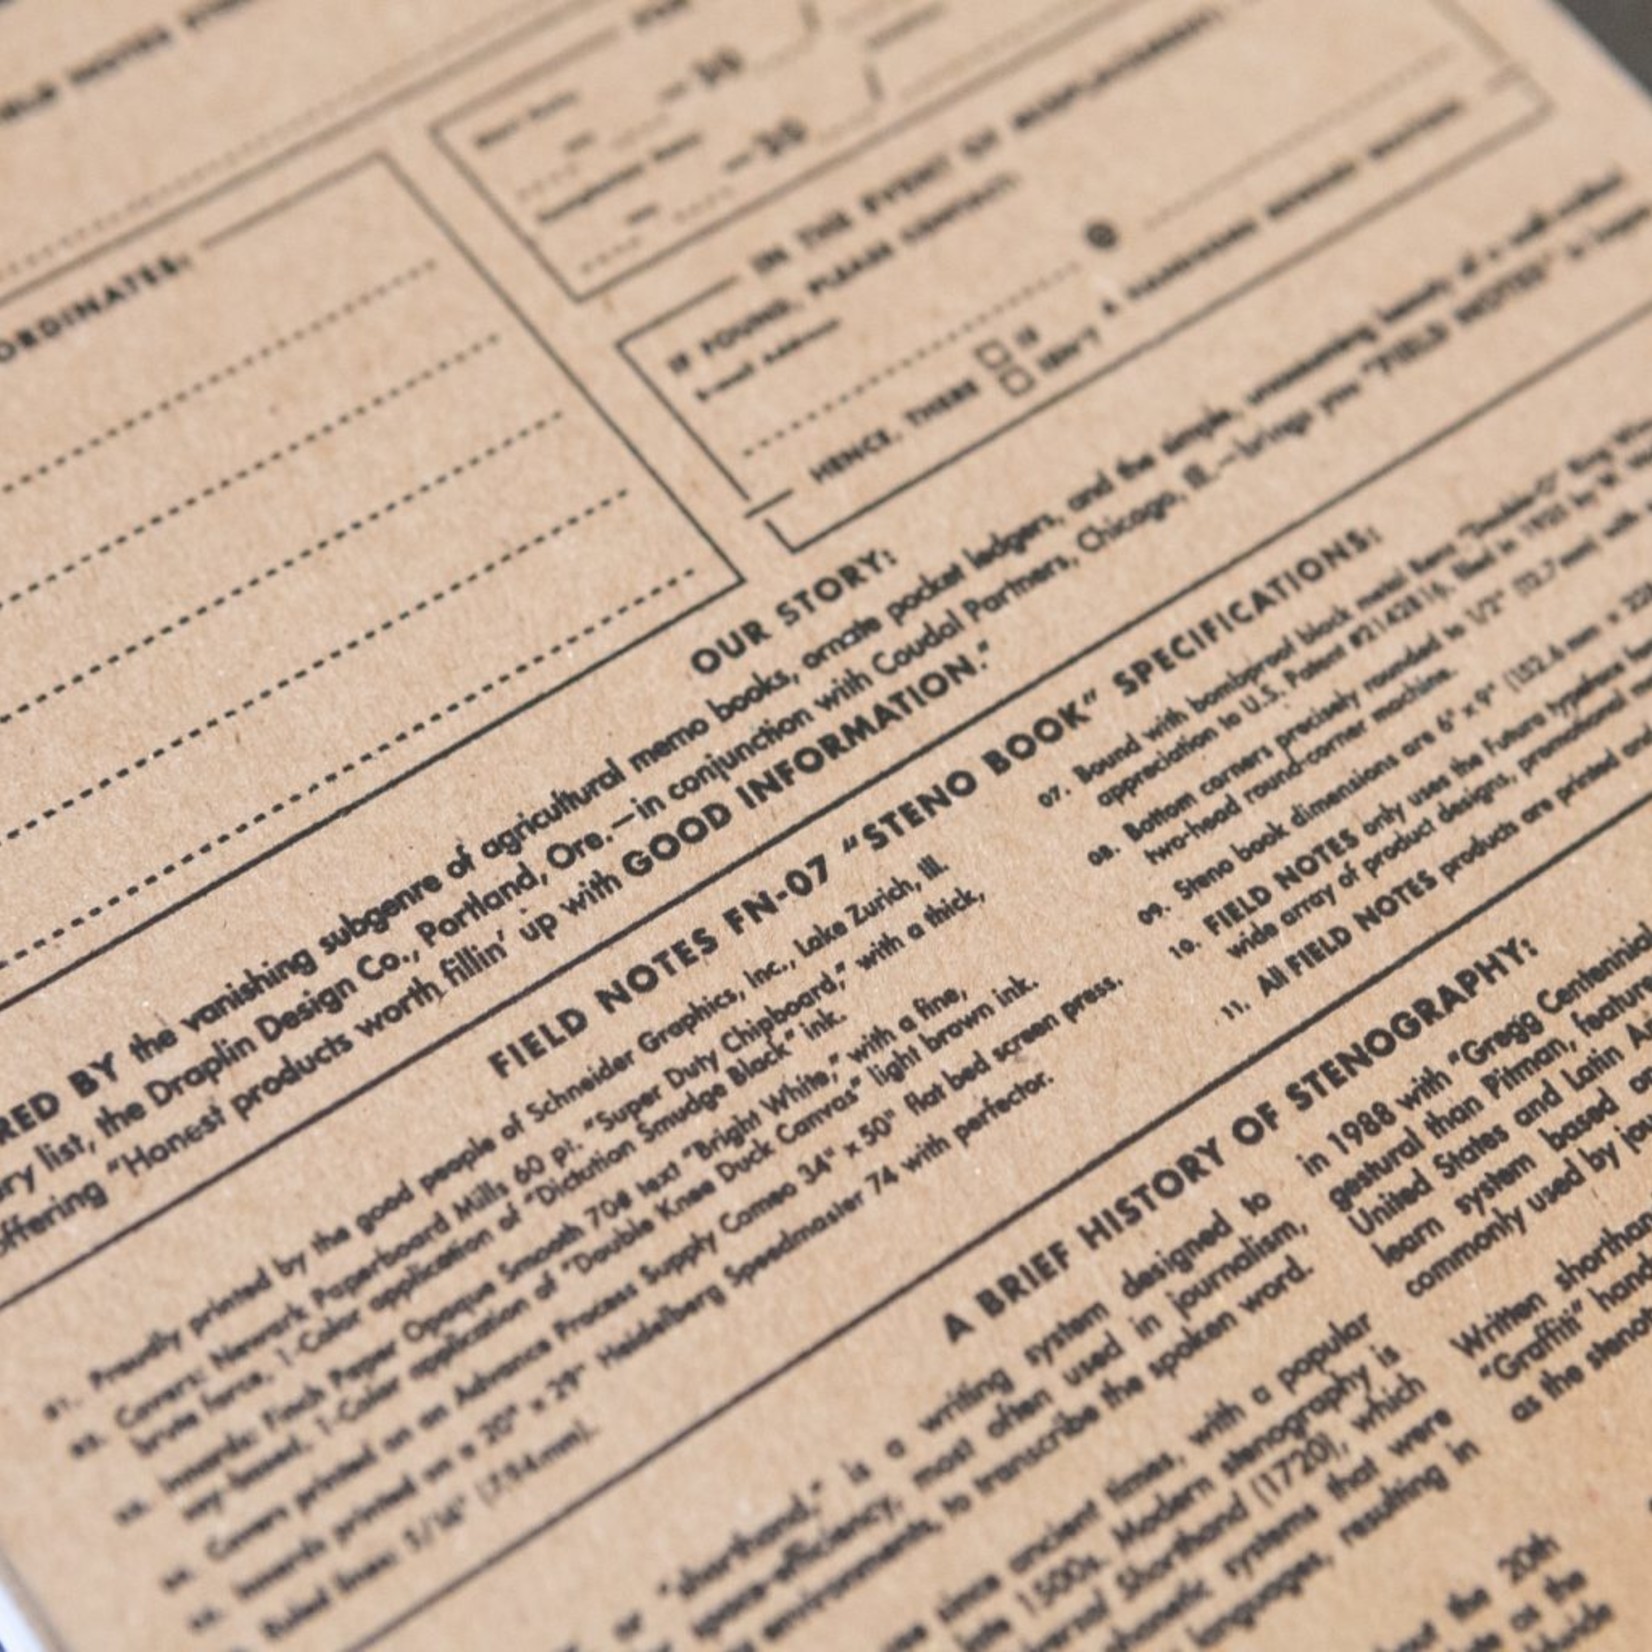 ORDINATES:
IN THE EVENT OF MISPLACEMENT
IF FOUND, PLEASE CONTACT:
E-mail Address
@
HENCE, THERE
IS
ISN'T
A HANDSOME REWARD WAITING
OUR STORY:
RED BY the vanishing subgenre of agricultural memo books, ornate pocket ledgers, and the simple, unassuming beauty of a well-crafted
ry list, the Draplin Design Co., Portland, Ore.—in conjunction with Coudal Partners, Chicago, Ill.—brings you "FIELD NOTES"
offering "Honest products worth fillin' up with GOOD INFORMATION."
FIELD NOTES FN-07 "STENO BOOK" SPECIFICATIONS:
01. Proudly printed by the good people of Schneider Graphics, Inc., Lake Zurich, Ill.
02. Covers: Newark Paperboard Mills 60 pt. "Super Duty Chipboard," with a thick,
brute force, 1-Color application of "Dictation Smudge Black" ink.
03. Innards: Finch Paper Opaque Smooth 70# text "Bright White," with a fine,
soy-based, 1-Color application of "Double Knee Duck Canvas" light brown ink.
04. Covers printed on an Advance Process Supply Cameo 34" x 50" flat bed screen press.
05. Innards printed on a 20" x 29" Heidelberg Speedmaster 74 with perfector.
Ruled lines: 5/16" (7.94mm).
07. Bound with bombproof black metal "Double-O" Ring
appreciation to U.S. Patent #2142816, filed in 1935 by
08. Bottom corners precisely rounded to 1/2" (12.7mm) with
two-head round-corner machine.
09. Steno book dimensions are 6" x 9" (152.4mm x
10. FIELD NOTES only uses the Futura typeface
wide array of product designs, promotional
11. All FIELD NOTES products are printed and
A BRIEF HISTORY OF STENOGRAPHY:
or "shorthand," is a writing system designed to
space-efficiency, most often used in journalism,
environments, to transcribe the spoken word.
since ancient times, with a popular
late 1500s. Modern stenography is
Shorthand (1720), which
systems that were
languages, resulting in
the 20th
as the
in 1988 with "Gregg Centennial
gestural than Pitman, feature
United States and Latin
learn system based
commonly used by
Written shorthan
"Graffiti" hand
as the steno